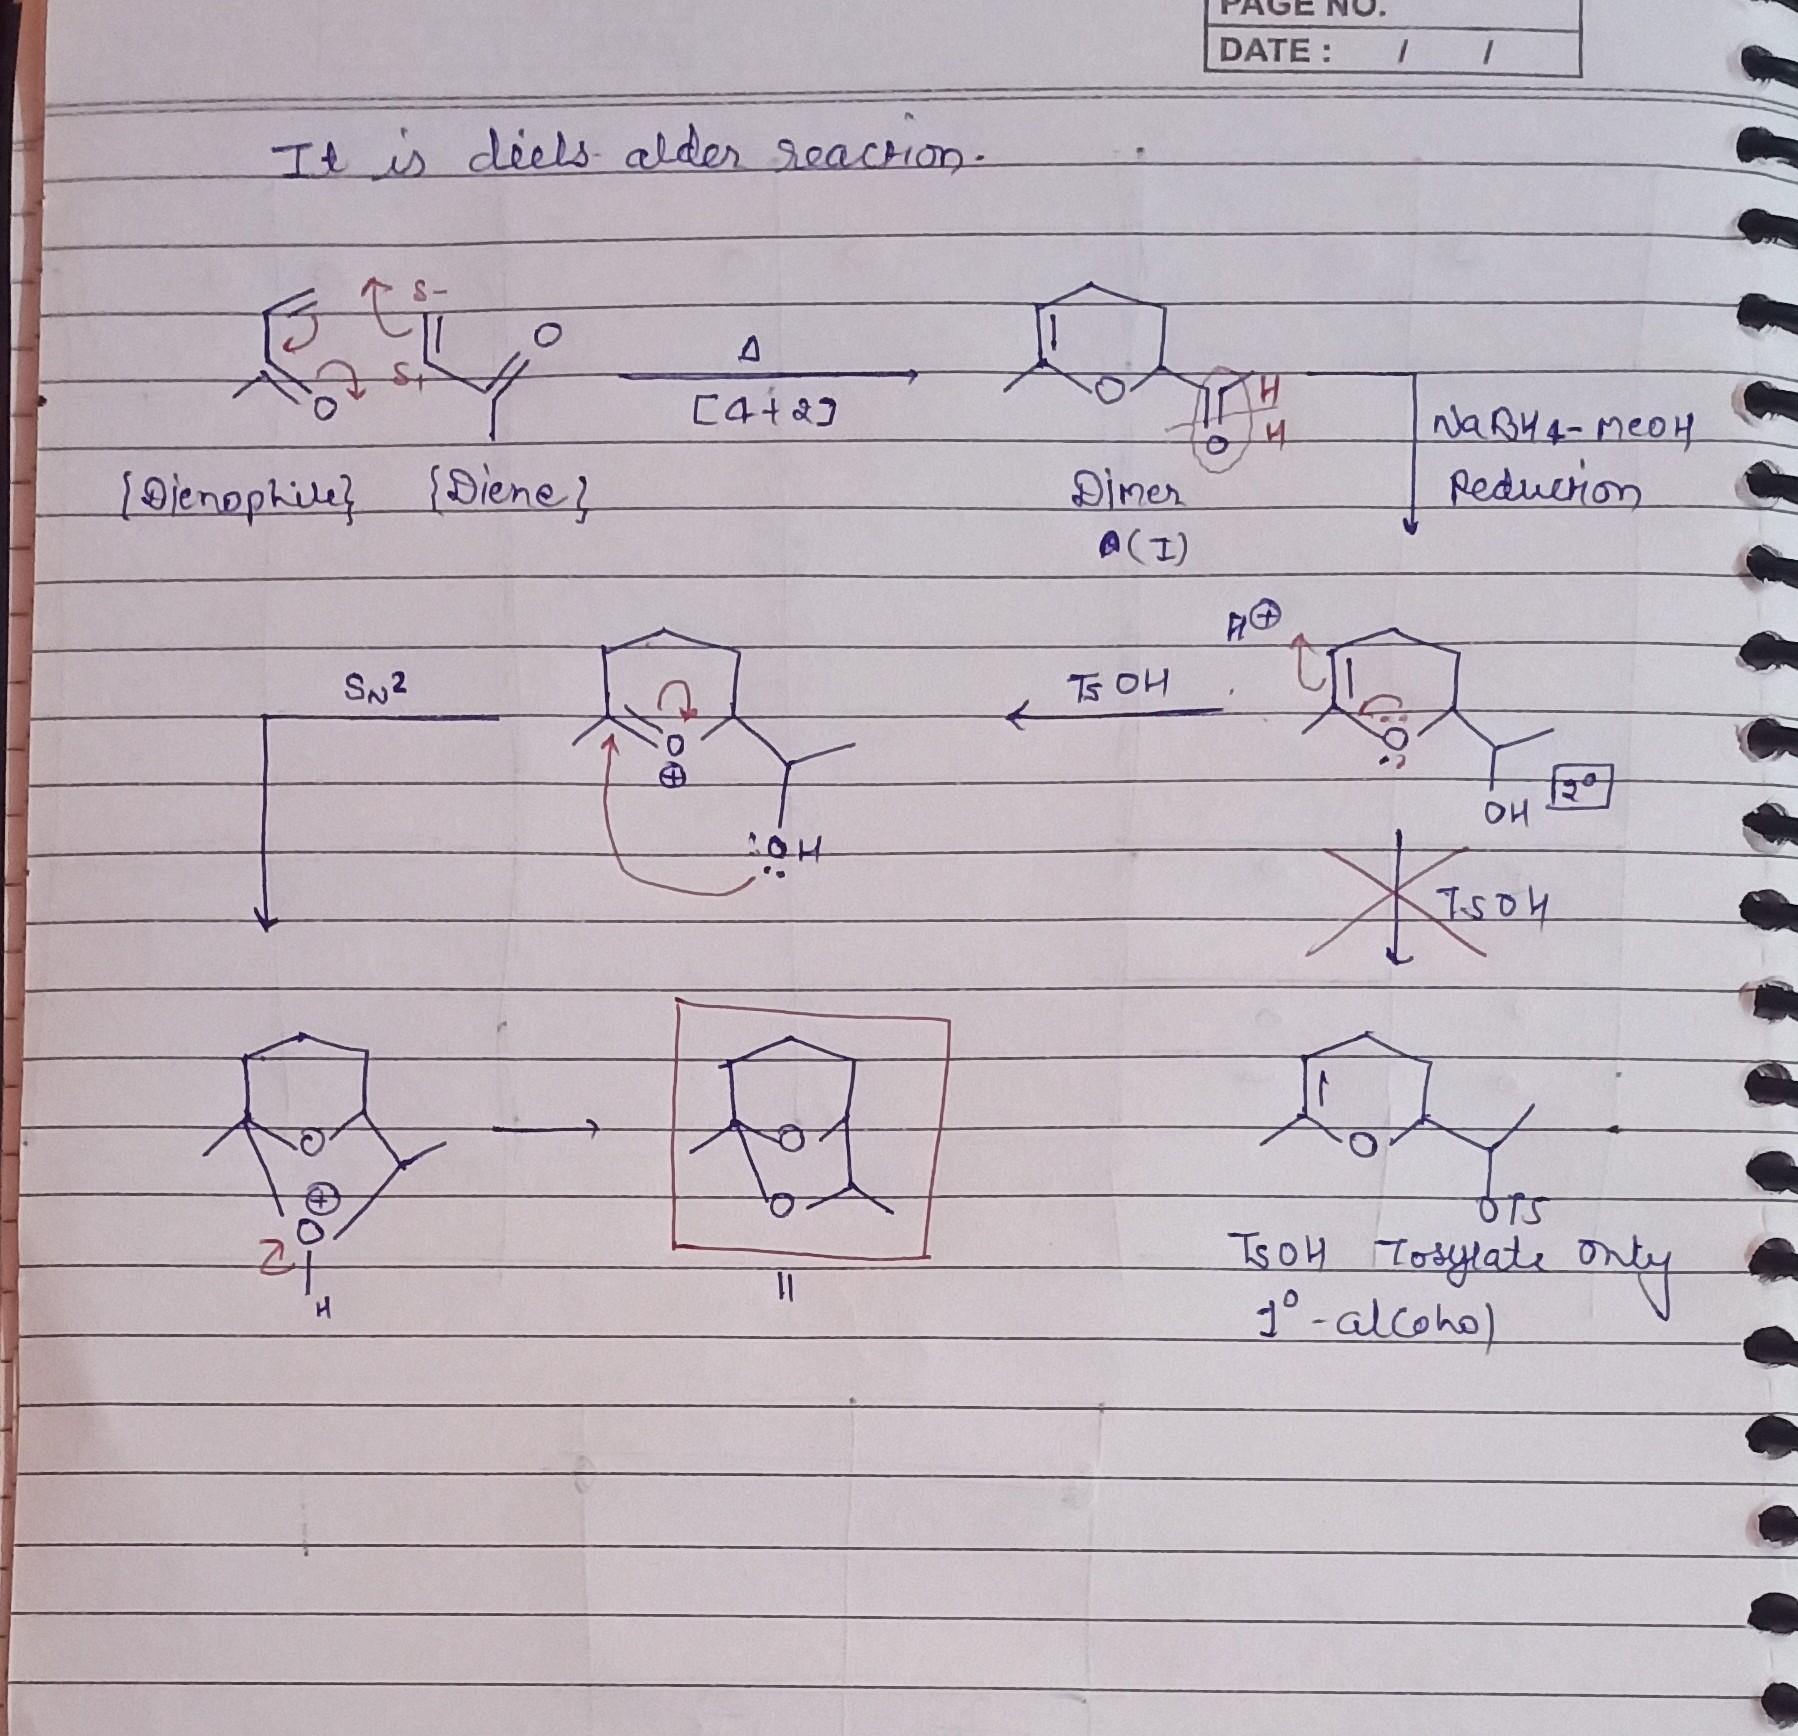 PAGE NO.
DATE : / /
It is diels alder reaction.
δ-
O
Δ
O
δ+
[4+2]
O
H
H
O
NaBH4-MeOH
{Dienophile} {Diene}
Dimer
Reduction
(I)
H⊕
SN2
TsOH
O
⊕
O
OH 2°
:OH
TsOH
O
O
O
⊕
O
O
OTs
H
TsOH Tosylate only
1°-alcohol